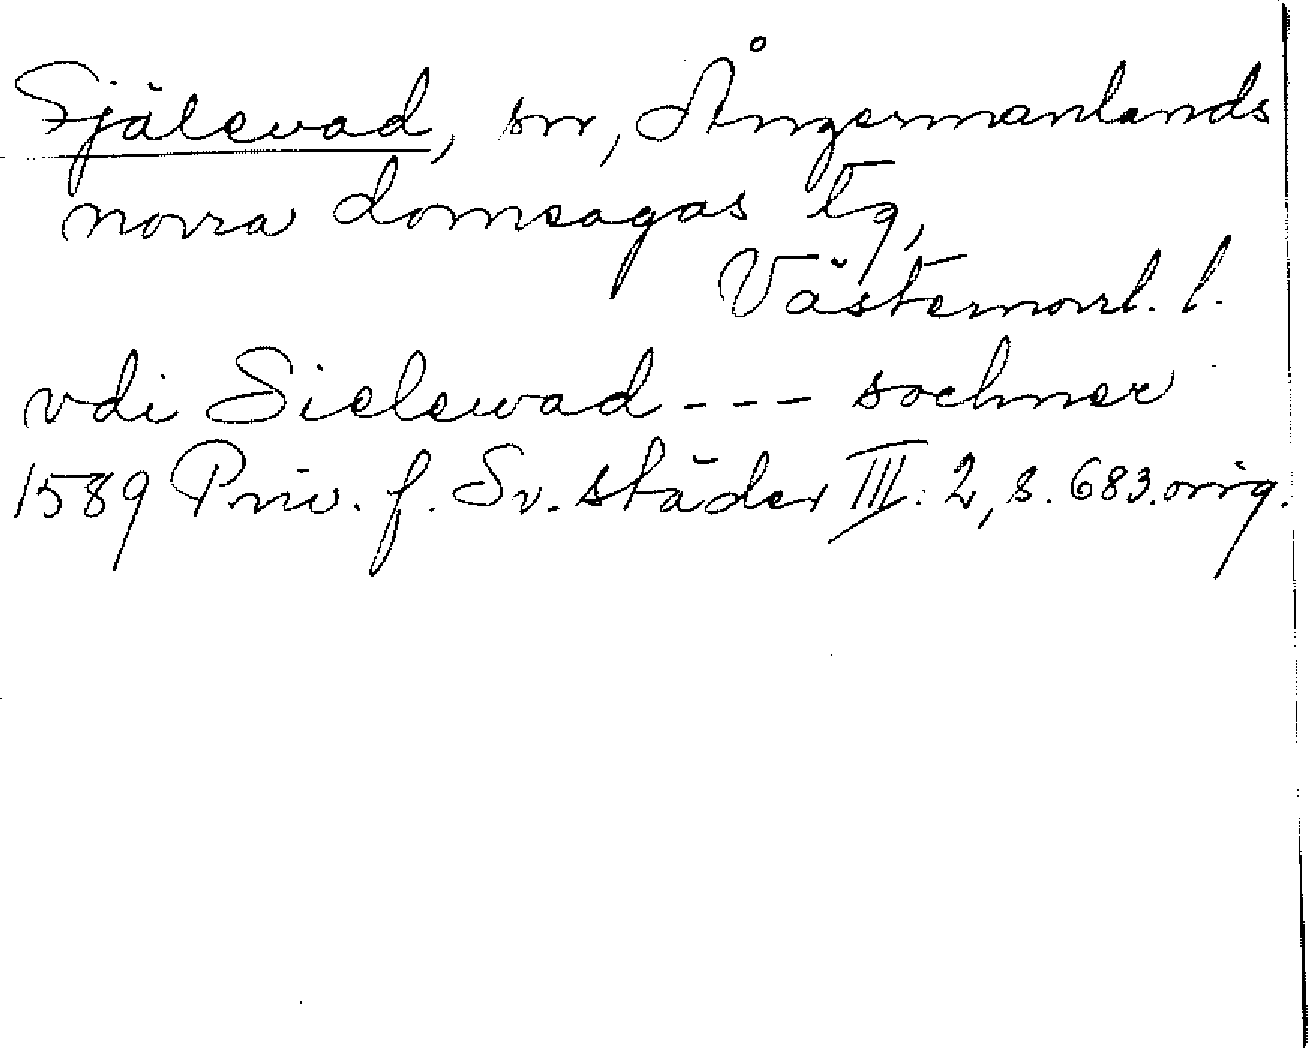 Själevad, sn, Ångermanlands
norra domsagas tg,
Västernorrl. l.
vdi Sielewad --- sochner
1589 Priv. f. Sv. städer III. 2, s. 683. orig.